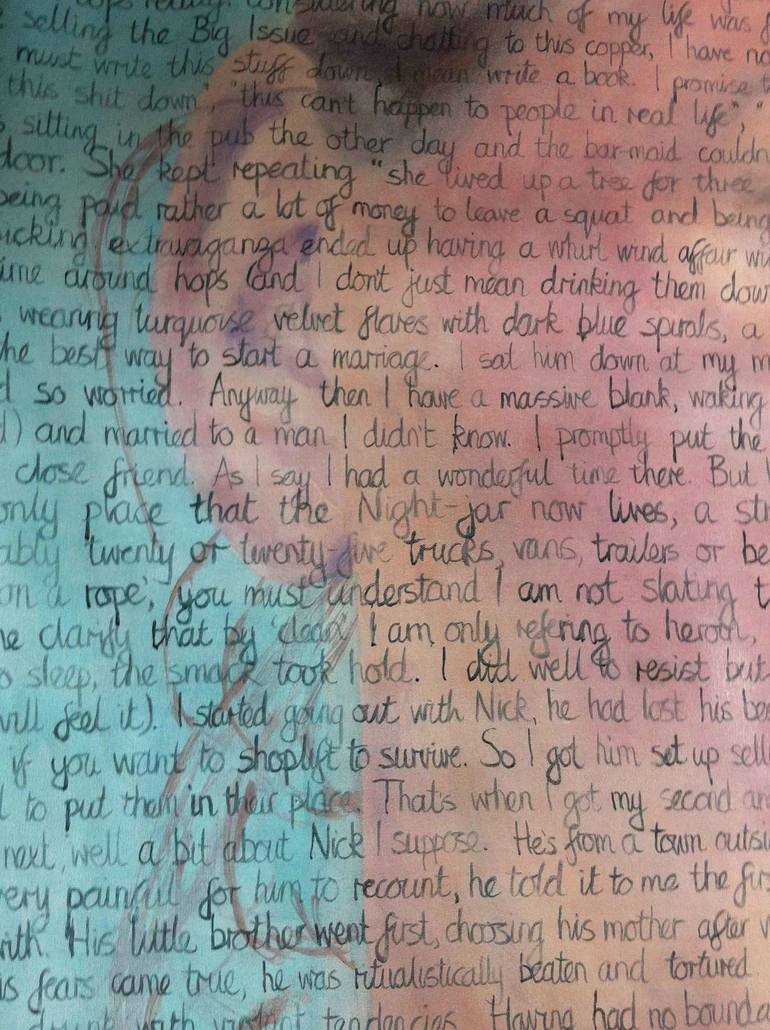 considering how much of my life was
selling the Big Issue and chatting to this copper, I have no
must write this stuff down, I mean write a book. I promise
this shit down", "this can't happen to people in real life", "
sitting in the pub the other day and the bar-maid couldn
door. She kept repeating "she lived up a tree for three
being paid rather a lot of money to leave a squat and being
ucking extravaganza ended up having a whirl wind affair wi
ime around hops (and I dont just mean drinking them dow
wearing turquoise velvet flares with dark blue spirals, a
he best way to start a marriage. I sat him down at my m
d so worried. Anyway then I have a massive blank, waking
) and married to a man I didn't know. I promptly put the
close friend. As I say I had a wonderful time there. But
only place that the Night-jar now lives, a st
ably 'twenty or twenty-five trucks, vans, trailers or be
on a rope', you must understand I am not slating t
he clarify that by 'clean' I am only refering to heroin,
o sleep, the smack took hold. I did well to resist but
will feel it). I started going out with Nick, he had lost his be
if you want to shoplift to survive. So I got him set up sell
to put them in their place. That's when I got my second an
next, well a bit about Nick I suppose. He's from a town outsi
ery painful for him to recount, he told it to me the fir
ith. His little brother went first, choosing his mother after
is fears came true, he was ritualistically beaten and tortured.
drunk with violent tendancies. Having had no bounda